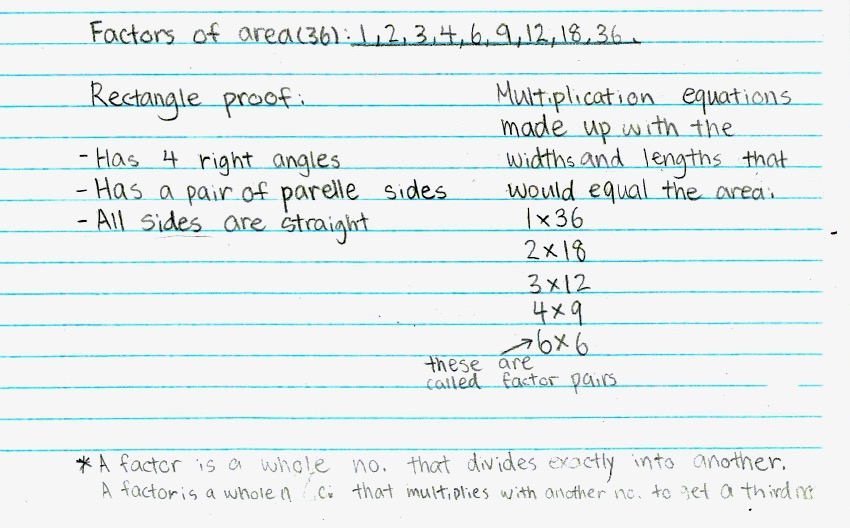 Factors of area(36): 1,2,3,4,6,9,12,18,36.
Rectangle proof:
- Has 4 right angles
- Has a pair of parelle sides
- All sides are straight
Multiplication equations
made up with the
widths and lengths that
would equal the area:
1×36
2×18
3×12
4×9
→6×6
these are
called factor pairs
*A factor is a whole no. that divides exactly into another.
A factor is a whole that multiplies with another no. to get a third